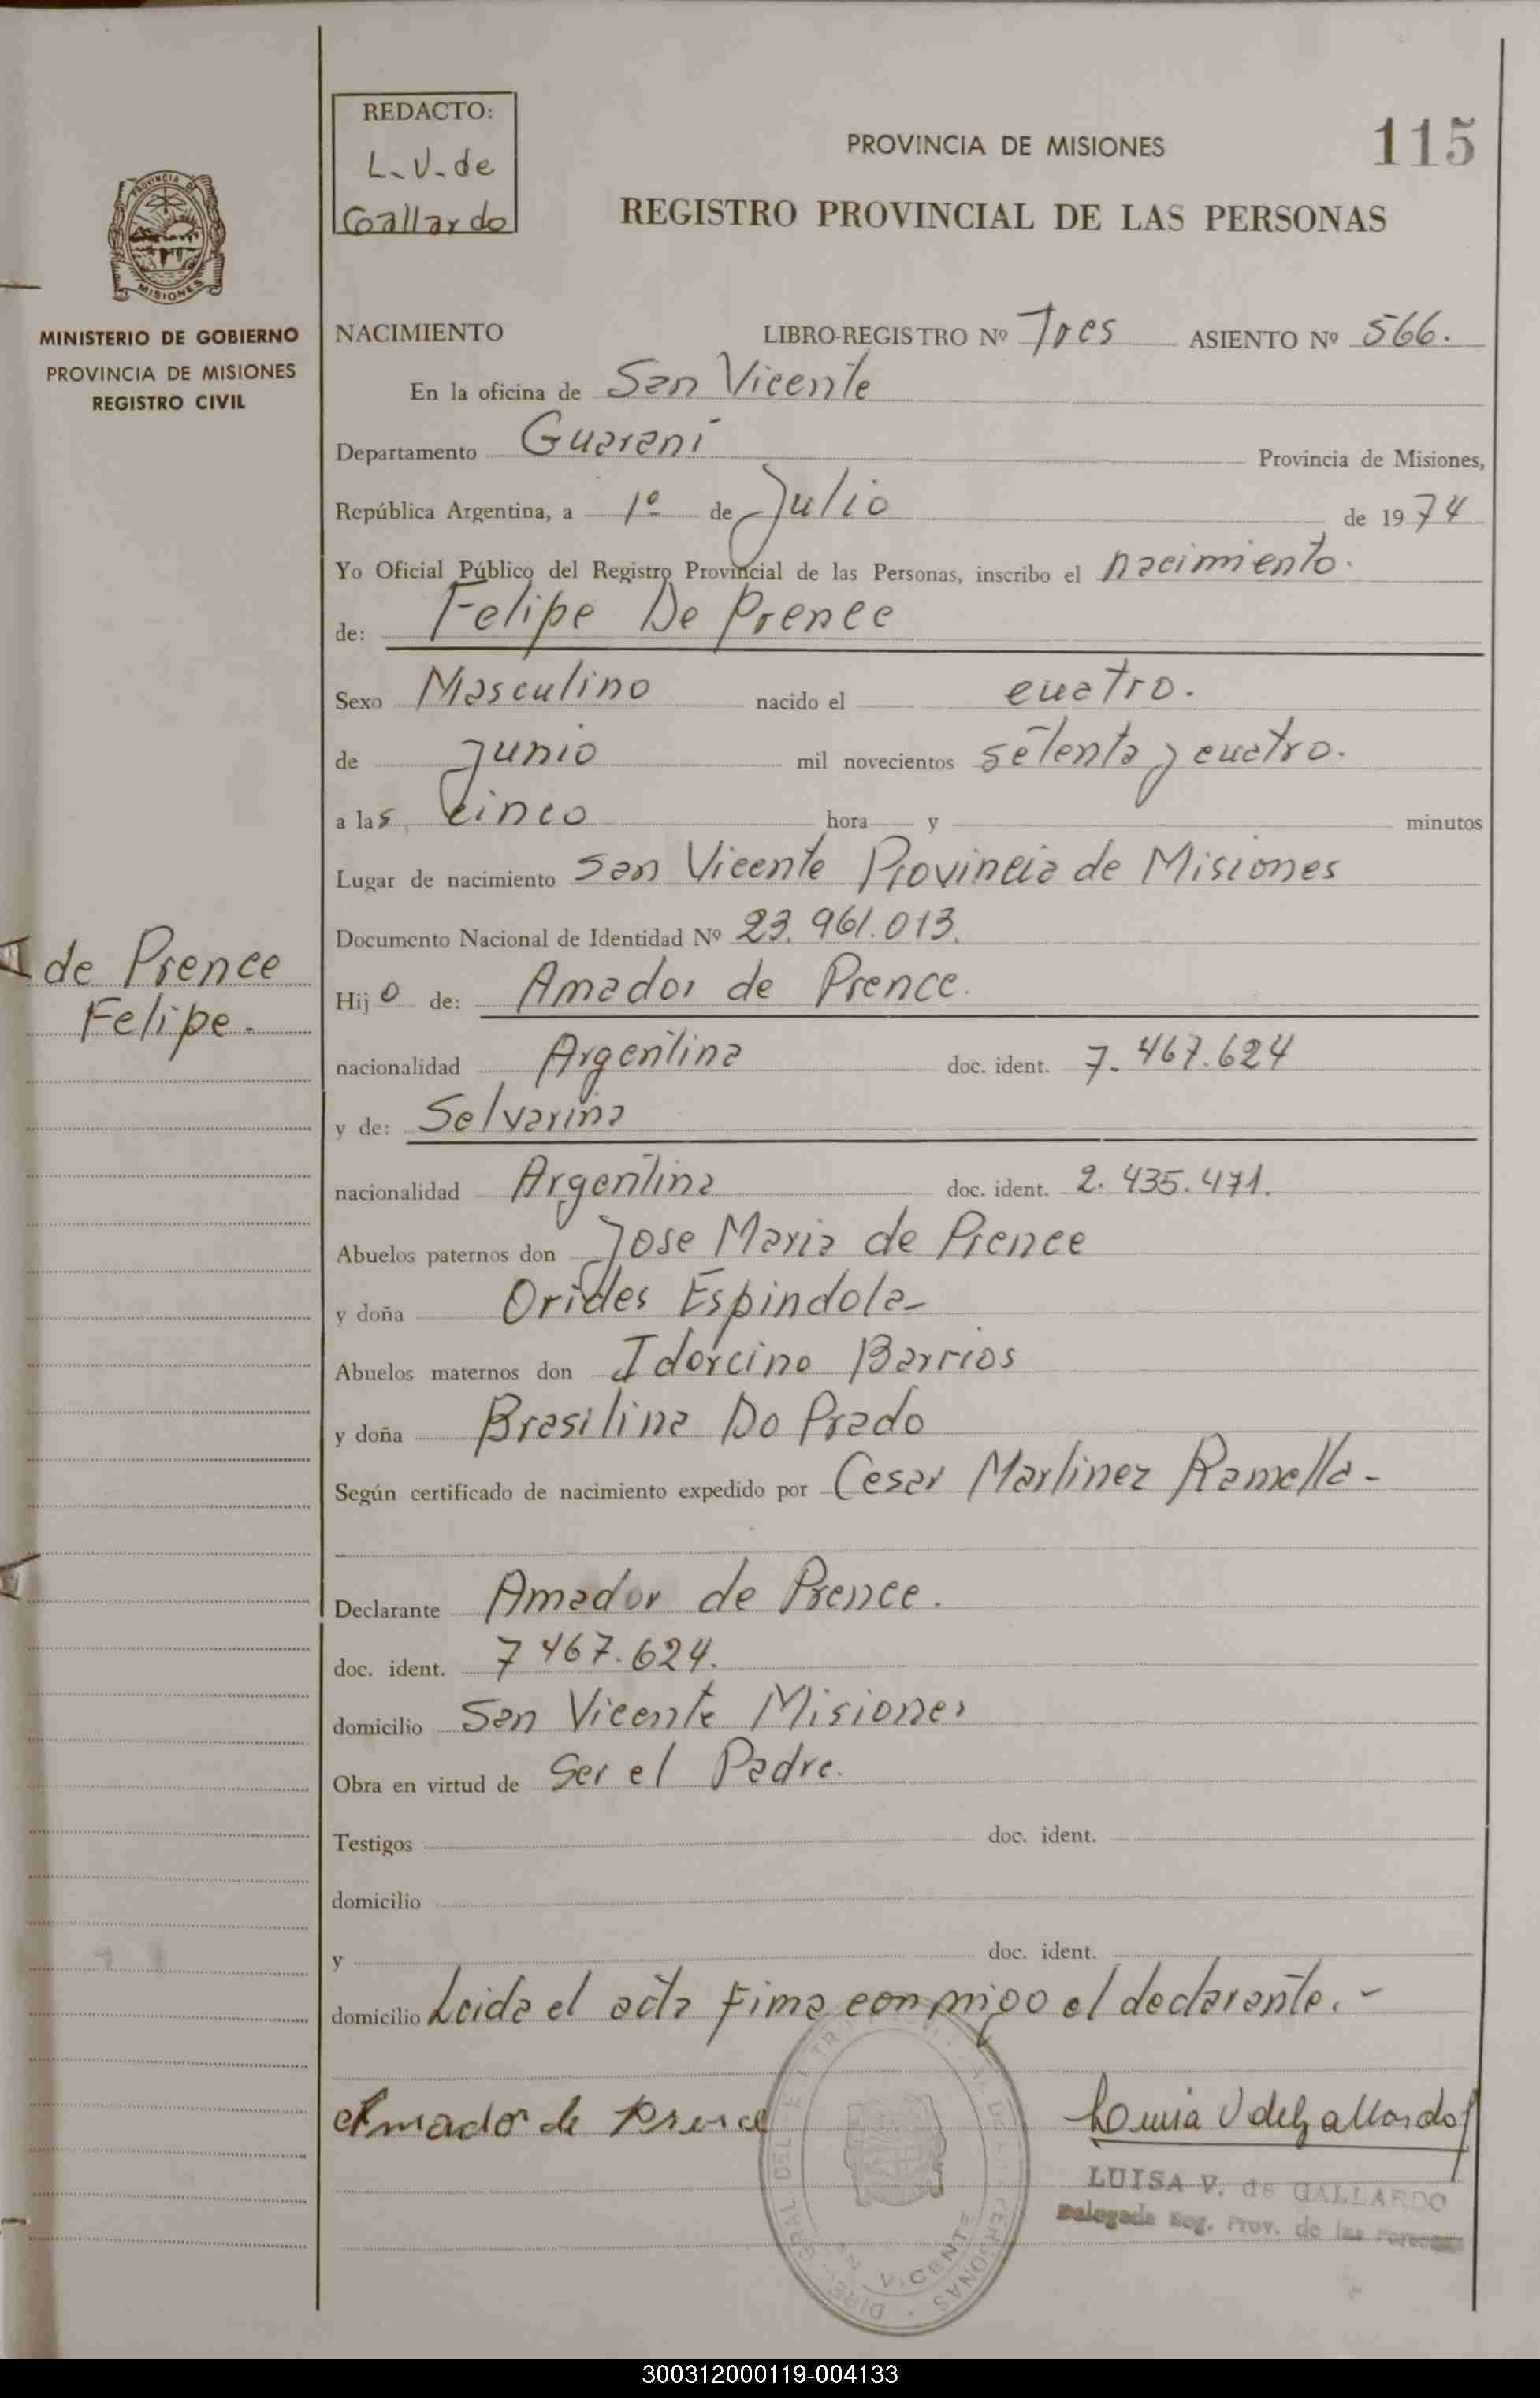 REDACTO:
L. V. de
Gallardo
PROVINCIA DE MISIONES
115
REGISTRO PROVINCIAL DE LAS PERSONAS
PROVINCIA DE
MISIONES
MINISTERIO DE GOBIERNO
PROVINCIA DE MISIONES
REGISTRO CIVIL
NACIMIENTO LIBRO-REGISTRO Nº Tres ASIENTO Nº 566.
En la oficina de San Vicente
Departamento Guaraní Provincia de Misiones,
República Argentina, a 1º de Julio de 1974
Yo Oficial Público del Registro Provincial de las Personas, inscribo el nacimiento.
de: Felipe De Prence
Sexo Masculino nacido el cuatro.
de junio mil novecientos setenta y cuatro.
a las cinco hora y minutos
Lugar de nacimiento San Vicente Provincia de Misiones
Documento Nacional de Identidad Nº 23.961.013.
de Prence
Felipe.
Hijo de: Amador de Prence.
nacionalidad Argentina doc. ident. 7.467.624
y de: Selvarina
nacionalidad Argentina doc. ident. 2.435.471.
Abuelos paternos don Jose Maria de Prence
y doña Orides Espindola-
Abuelos maternos don Idorcino Barrios
y doña Brasilina Do Prado
Según certificado de nacimiento expedido por Cesar Martinez Ramella-
Declarante Amador de Prence.
doc. ident. 7 467.624.
domicilio San Vicente Misiones
Obra en virtud de Ser el Padre.
Testigos doc. ident.
domicilio
y doc. ident.
domicilio Leida el acta Fima conmigo el declarante.-
Amador de Prence
Louisa V de Gallardo
LUISA V. de GALLARDO
Delegada Reg. Prov. de las Personas
VICENTE
PERSONAS
300312000119-004133